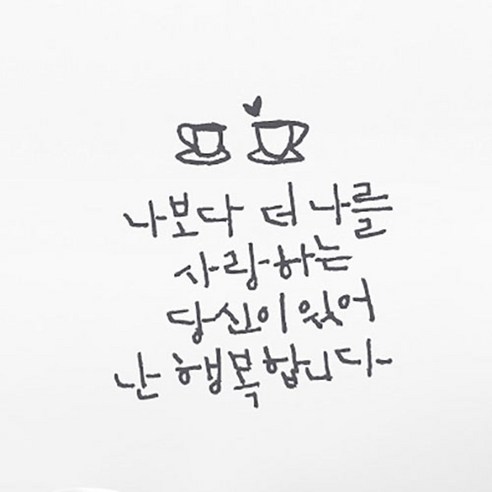 나보다 더 나를
사랑하는
당신이 있어
난 행복합니다